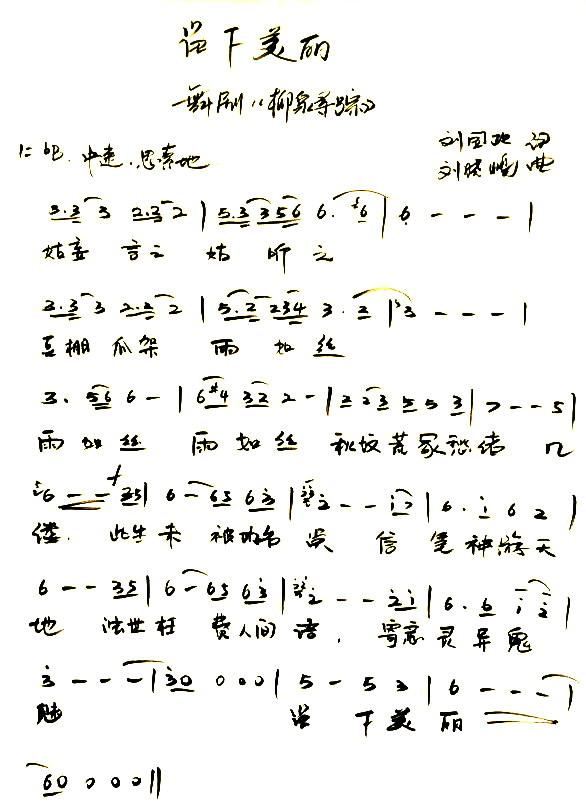 留下美丽
舞剧《柳泉寻踪》
1=bE 中速.思索地
刘国 词
刘晓 曲
3.3 3 2.3 2 | 5.3 356 6. 6 | 6 - - - |
姑妄言之 姑听之
3.3 3 2.2 2 | 5.2 234 3. 2 | 3 - - - |
豆棚瓜架 雨如丝
3. 56 6 - | 6#4 32 2 - | 2 23 5 5 3 | 7 - - 5 |
雨如丝 雨如丝 秋坟荒冢愁绪几
6 - - 35 | 6 - 65 63 | 2 - - i7 | 6. i 6 2 |
缕. 此生未被功名误 信笔神游天
6 - - 35 | 6 - 65 63 | 2 - - 2i | 6. 6 i 2 |
地 浊世枉费人间 , 寄意灵异鬼
3 - - - | 30 0 0 0 | 5 - 5 3 | 6 - - - |
魅 留下美丽
60 0 0 0 ||